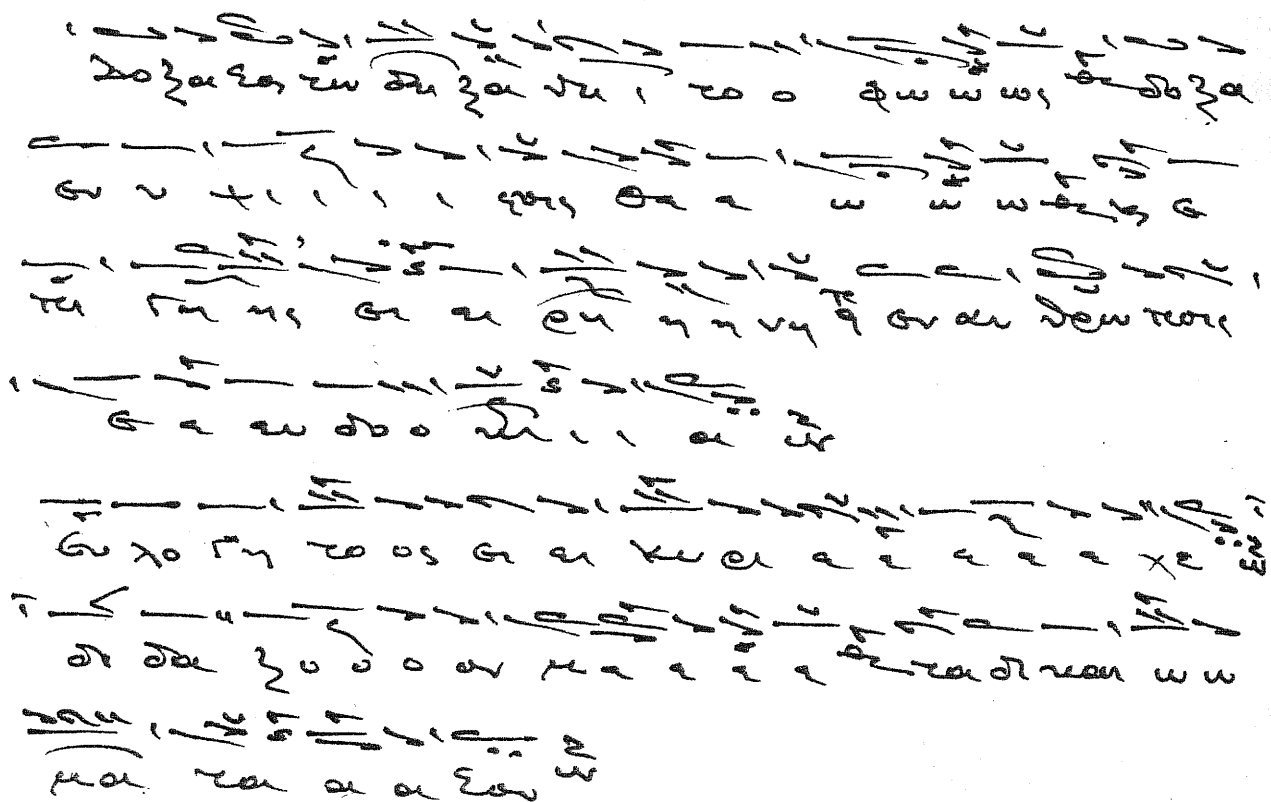 Δο ξα σοι τω δει ξα ντι ι το ο φω ω ως δο ξα
εν υ ψι ι ι ι στοις Θε ε ω ω ω και ε
πι γη ης ει ει ρη η η νη εν αν θρω ποις
ε ε ευ δο ο κι ι ι α
Ευ λο γη το ος ει ει Κυ ρι ε ε ε ε ε
δι δα ξο ο ο ον με ε ε ε τα δι και ω ω
μα τα α α σου